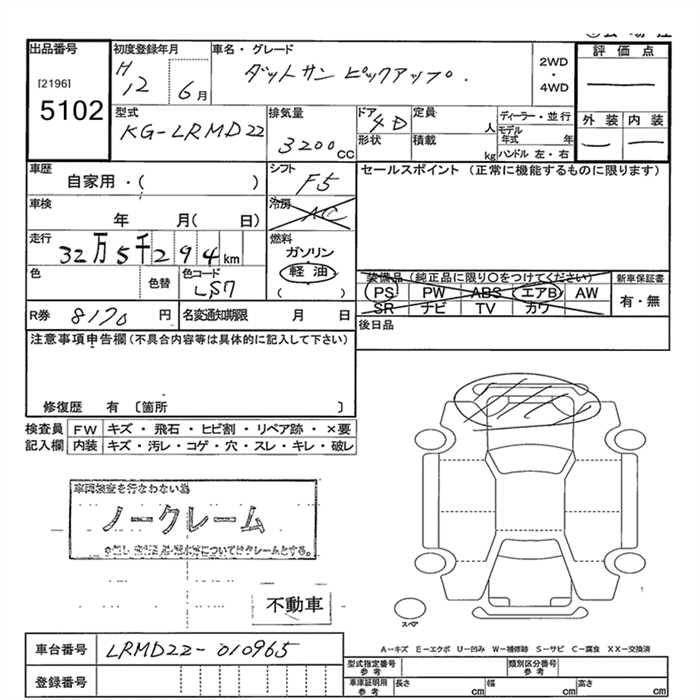 出品番号
[2196]
5102
初度登録年月
H
12
6月
車名・グレード
ダットサン ピックアップ.
2WD
・
4WD
評 価 点
外 装
内 装
型式
KG-LRMD22
排気量
3200cc
ドア
4D
形状
定員
人
積載
kg
ディーラー・並行
モデル
年式 年
ハンドル 左・右
車歴
自家用・( )
シフト
F5
セールスポイント (正常に機能するものに限ります)
車検
年 月( 日)
冷房
AC
走行
32万5千294km
燃料
ガソリン
軽油
( )
色
色替
色コード
LS7
装備品 (純正品に限り〇をつけてください)
PS PW ABS エアB AW
SR ナビ TV カワ
新車保証書
有・無
R券 8170 円
名変通知期限 月 日
後日品
注意事項申告欄(不具合内容等は具体的に記入して下さい)
修復歴 有 〔箇所 〕
検査員 FW キズ・飛石・ヒビ割・リペア跡・×要
記入欄 内装 キズ・汚レ・コゲ・穴・スレ・キレ・破レ
車両検査を行なわない為
ノークレーム
不動車
スペア
車台番号 LRMD22-010965
A－キズ E－エクボ U－凹み W－補修跡 S－サビ C－腐食 XX－交換済
登録番号
型式指定番号
参考
類別区分番号
参考
車庫証明用
参考
長さ cm
幅 cm
高さ cm